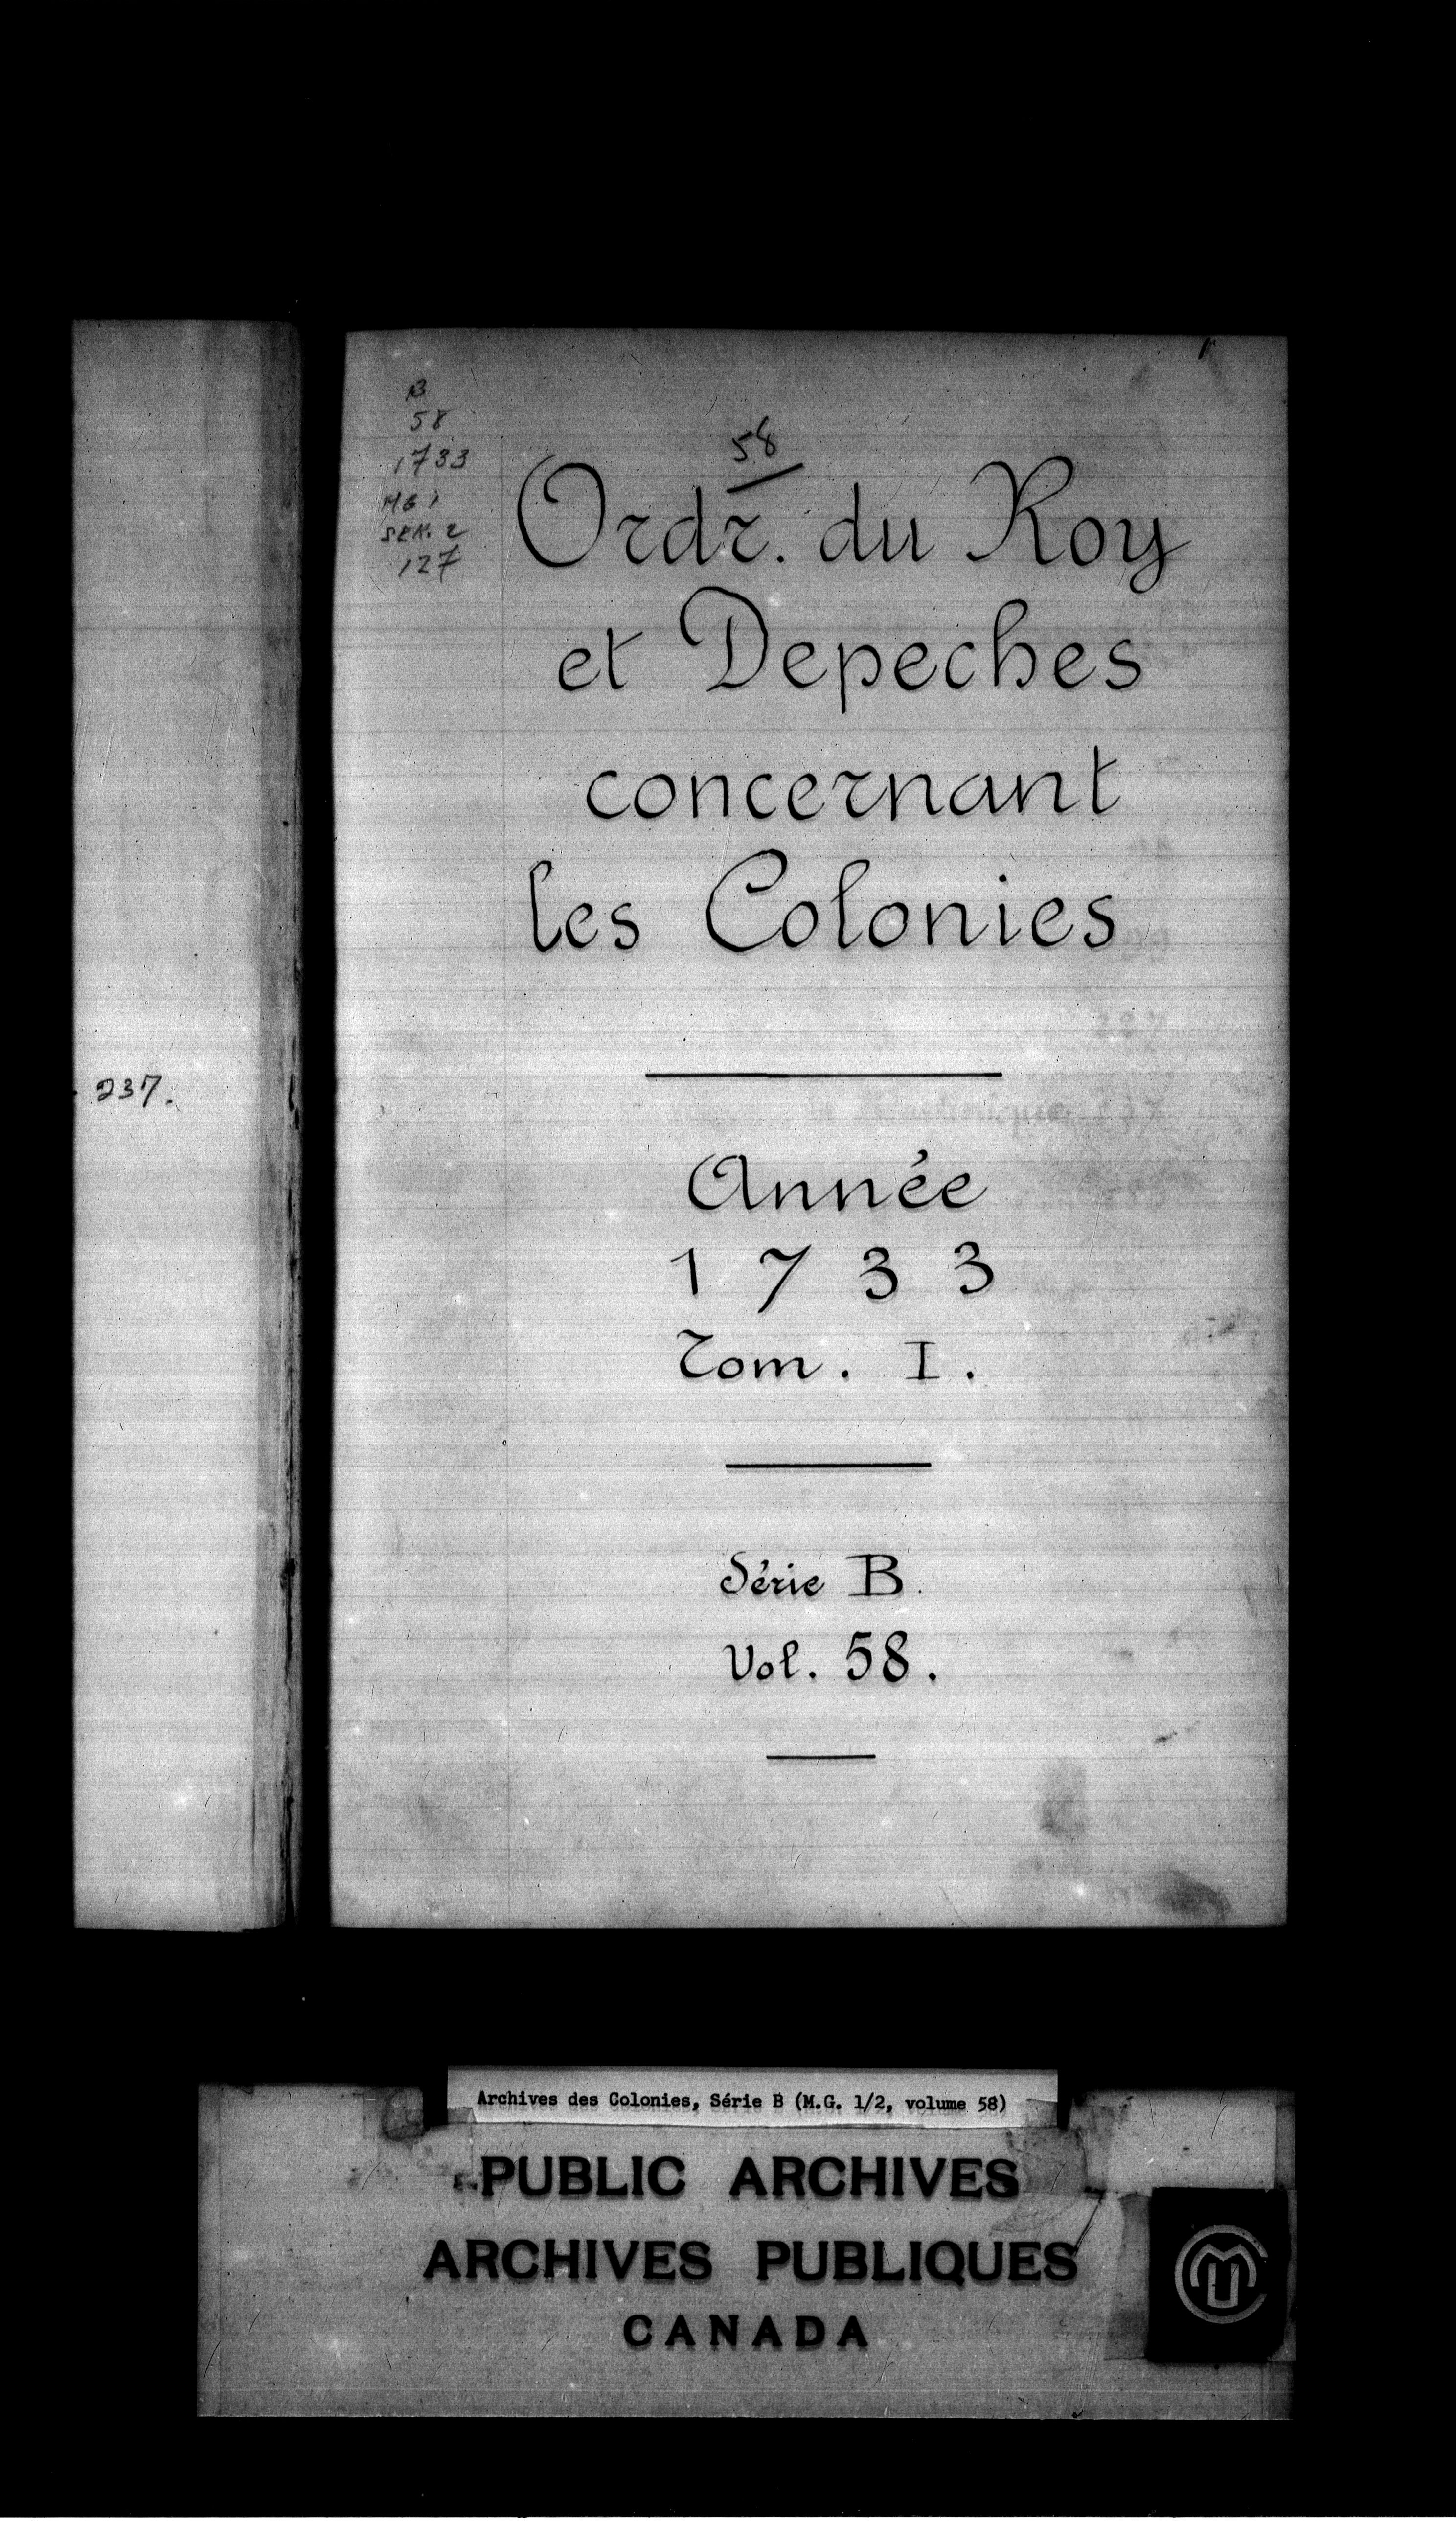 237.
B
58
1733
MG 1
SER. 2
127
58
Ordr. du Roy
et Depeches
concernant
les Colonies
Année
1733
Tom. I.
Série B.
Vol. 58.
Archives des Colonies, Série B (M.G. 1/2, volume 58)
PUBLIC ARCHIVES
ARCHIVES PUBLIQUES
CANADA